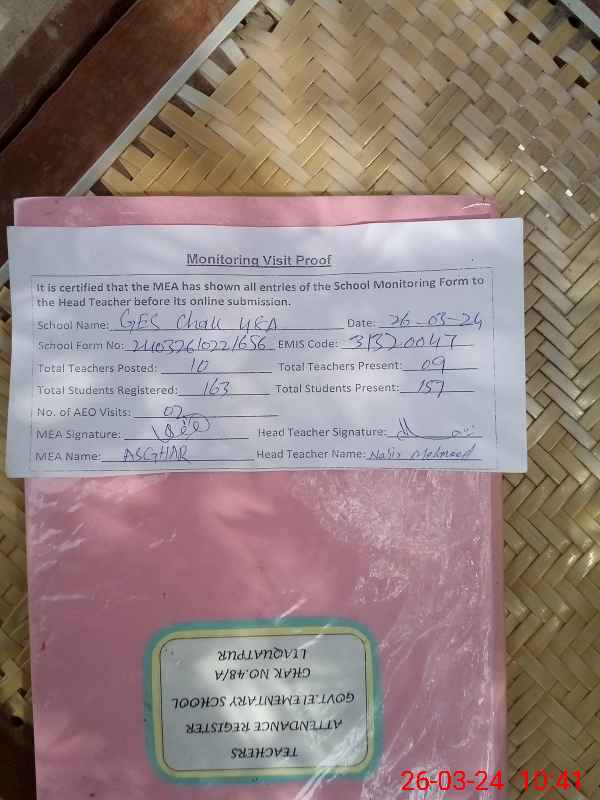 Monitoring Visit Proof
It is certified that the MEA has shown all entries of the School Monitoring Form to
the Head Teacher before its online submission.
School Name: GES Chak 48A Date: 26-03-24
School Form No: EMIS Code: 31320047
Total Teachers Posted: 10 Total Teachers Present: 09
Total Students Registered: 163 Total Students Present: 157
No. of AEO Visits: 02
MEA Signature: Head Teacher Signature:
MEA Name: ASGHAR Head Teacher Name: Nasir Mehmood
TEACHERS
ATTENDANCE REGISTER
GOVT.ELEMENTARY SCHOOL
CHAK NO.48/A
LIAQUATPUR
26-03-24 10:41